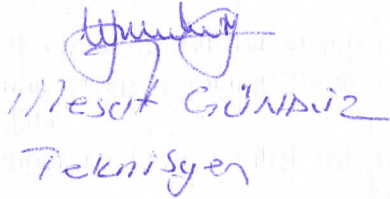 Mesut GÜNDÜZ
Teknisyen